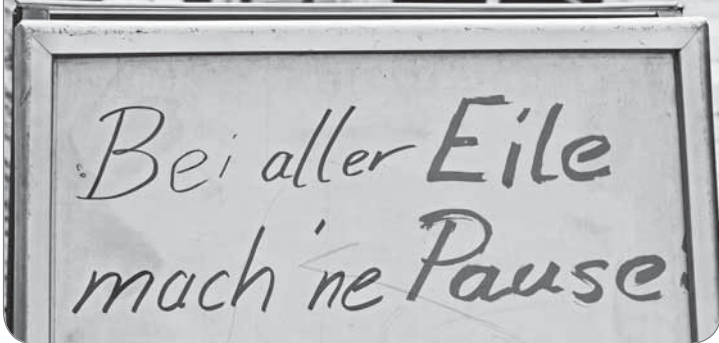 Bei aller Eile
mach 'ne Pause!